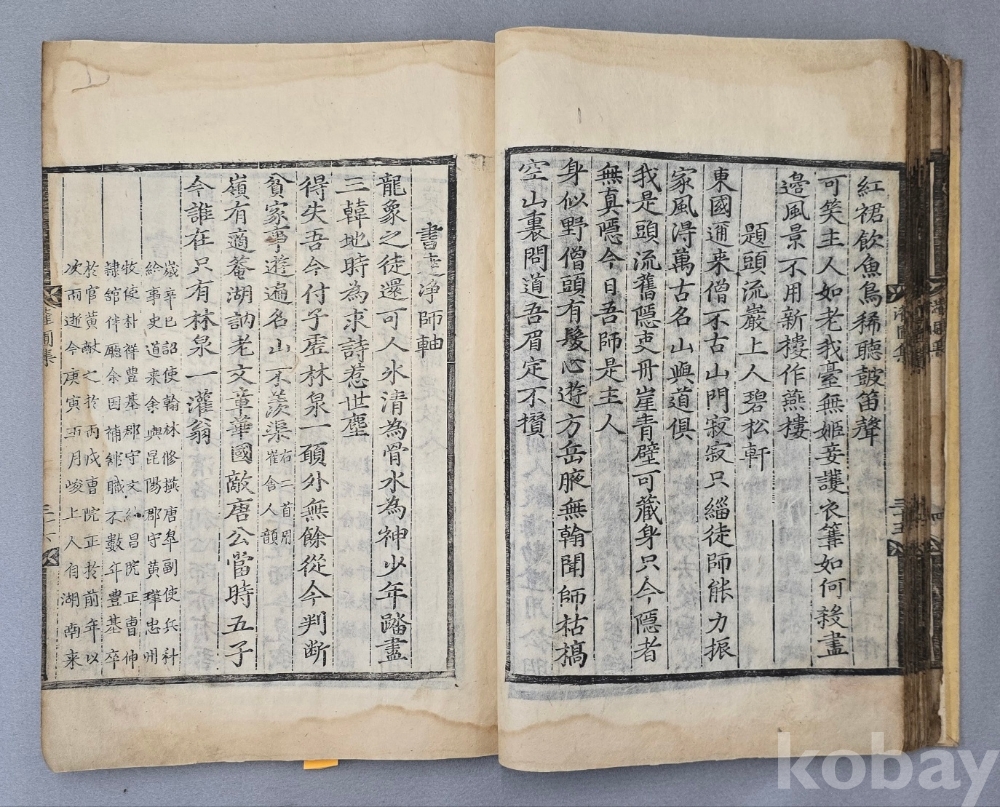 紅裙飲魚鳥稀聽皷笛聲
可笑主人如老我臺無姬妾護衣篝如何殺畫
邉風景不用新樓作燕樓
題頭流嚴上人碧松軒
東國通来僧不古山門寂寂只緇徒師能力振
家風淂萬古名山與道俱
我是頭流舊隠吏丹崖青壁可藏身只今隠者
無真隠今日吾師是主人
身似野僧頭有髮心遊方岳腋無翰聞師枯槁
空山裏問道吾眉定不攅
書達淨師軸
龍象之徒還可人氷清為骨水為神少年踏盡
三韓地時為求詩惹世塵
得失吾今付子虗林泉一頋外無餘從今判断
貧家事遊遍名山不羨渠
右二首用
崔舍人韻
嶺有適菴湖訥老文章華國敵唐公當時五子
今誰在只有林泉一灌翁
歳辛巳詔使翰林修撰唐皐副使兵科
給事史道来余與昆陽郡守黃㻶忠州
牧使朴祥豊基郡守文昌院正曺伸
隷舘伴廳余因補綘職不數年豊基卒
於官黃敵之於丙戌曺院正於前年以
次而逝今庚寅五月峻上人自湖南来
灌圃集
三十五
三十六
kobay